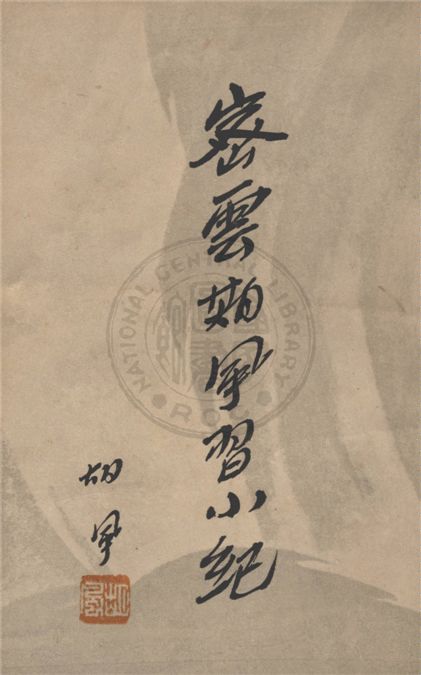 密雲期風習小紀
胡風
胡風
NATIONAL CENTRAL LIBRARY
R.O.C.